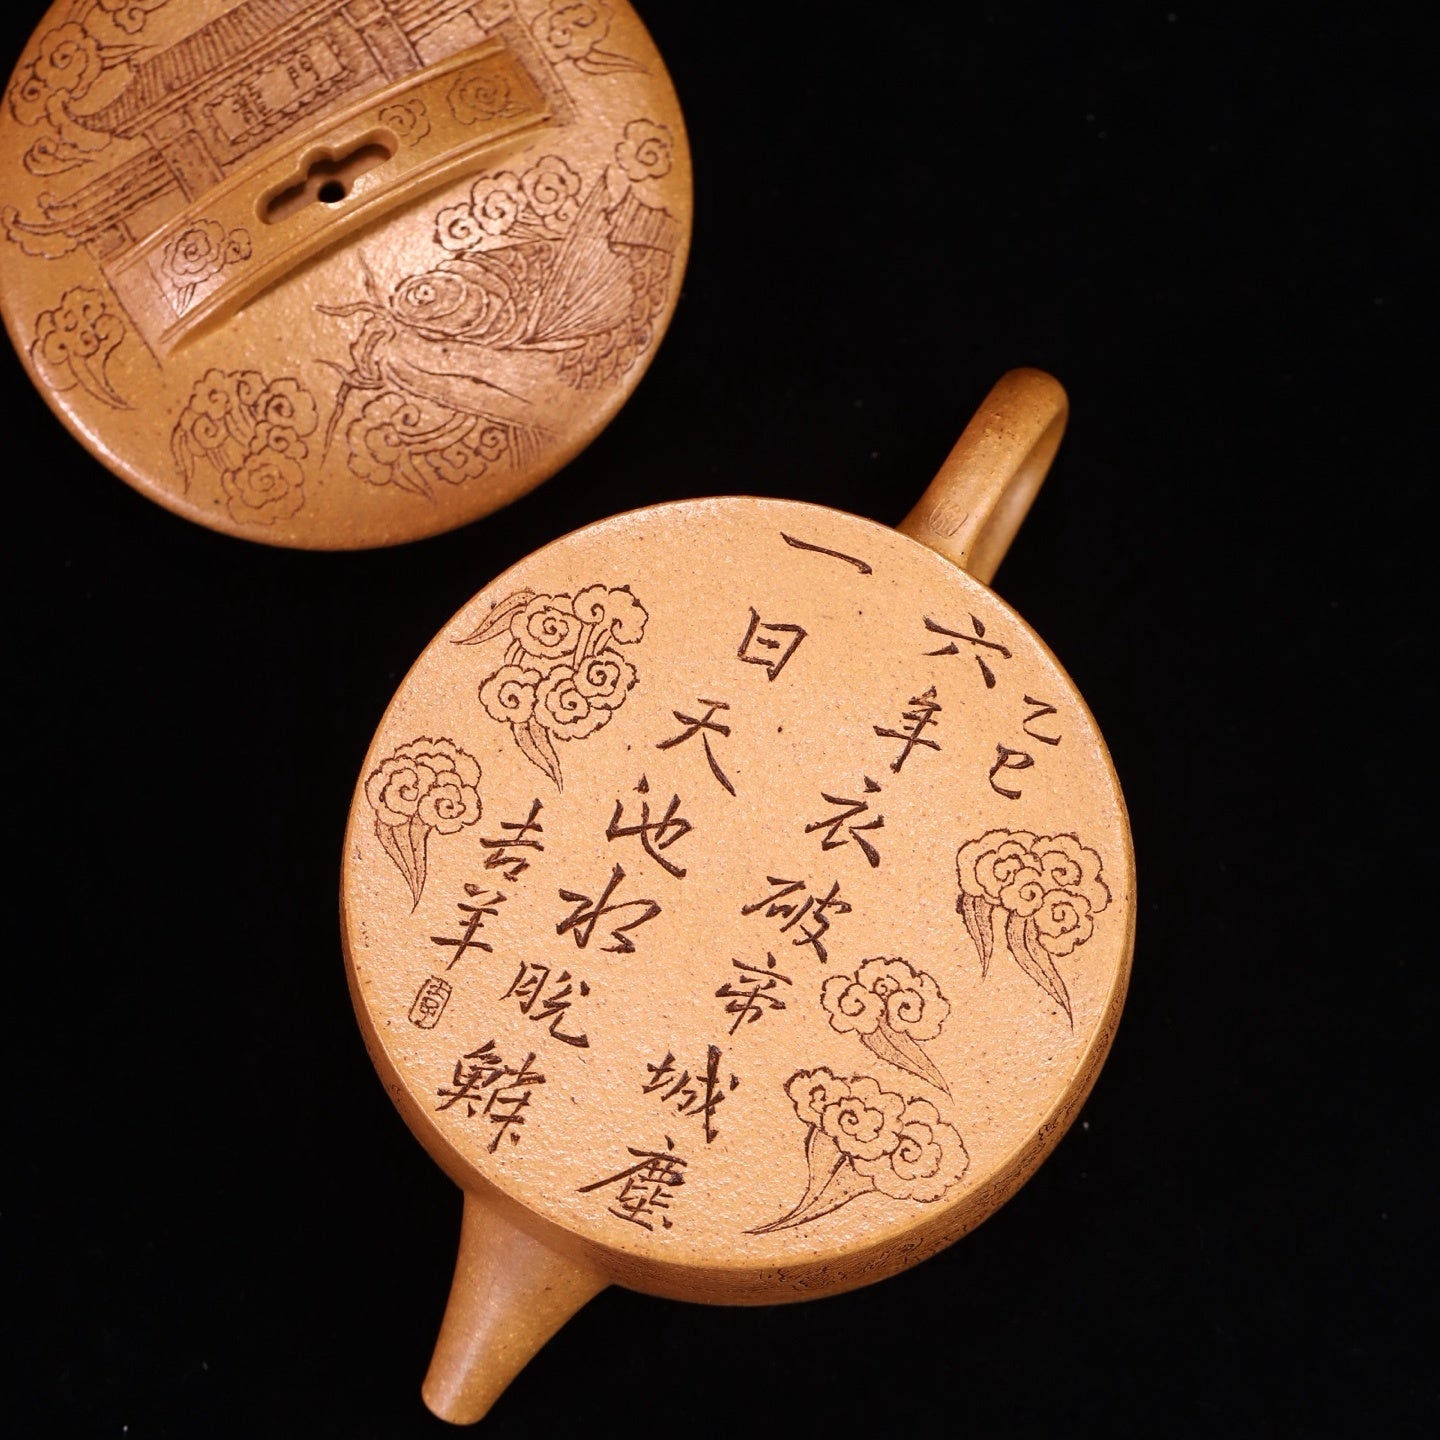 乙巳
六年衣破帝城塵
一日天池水脱鱗
吉羊